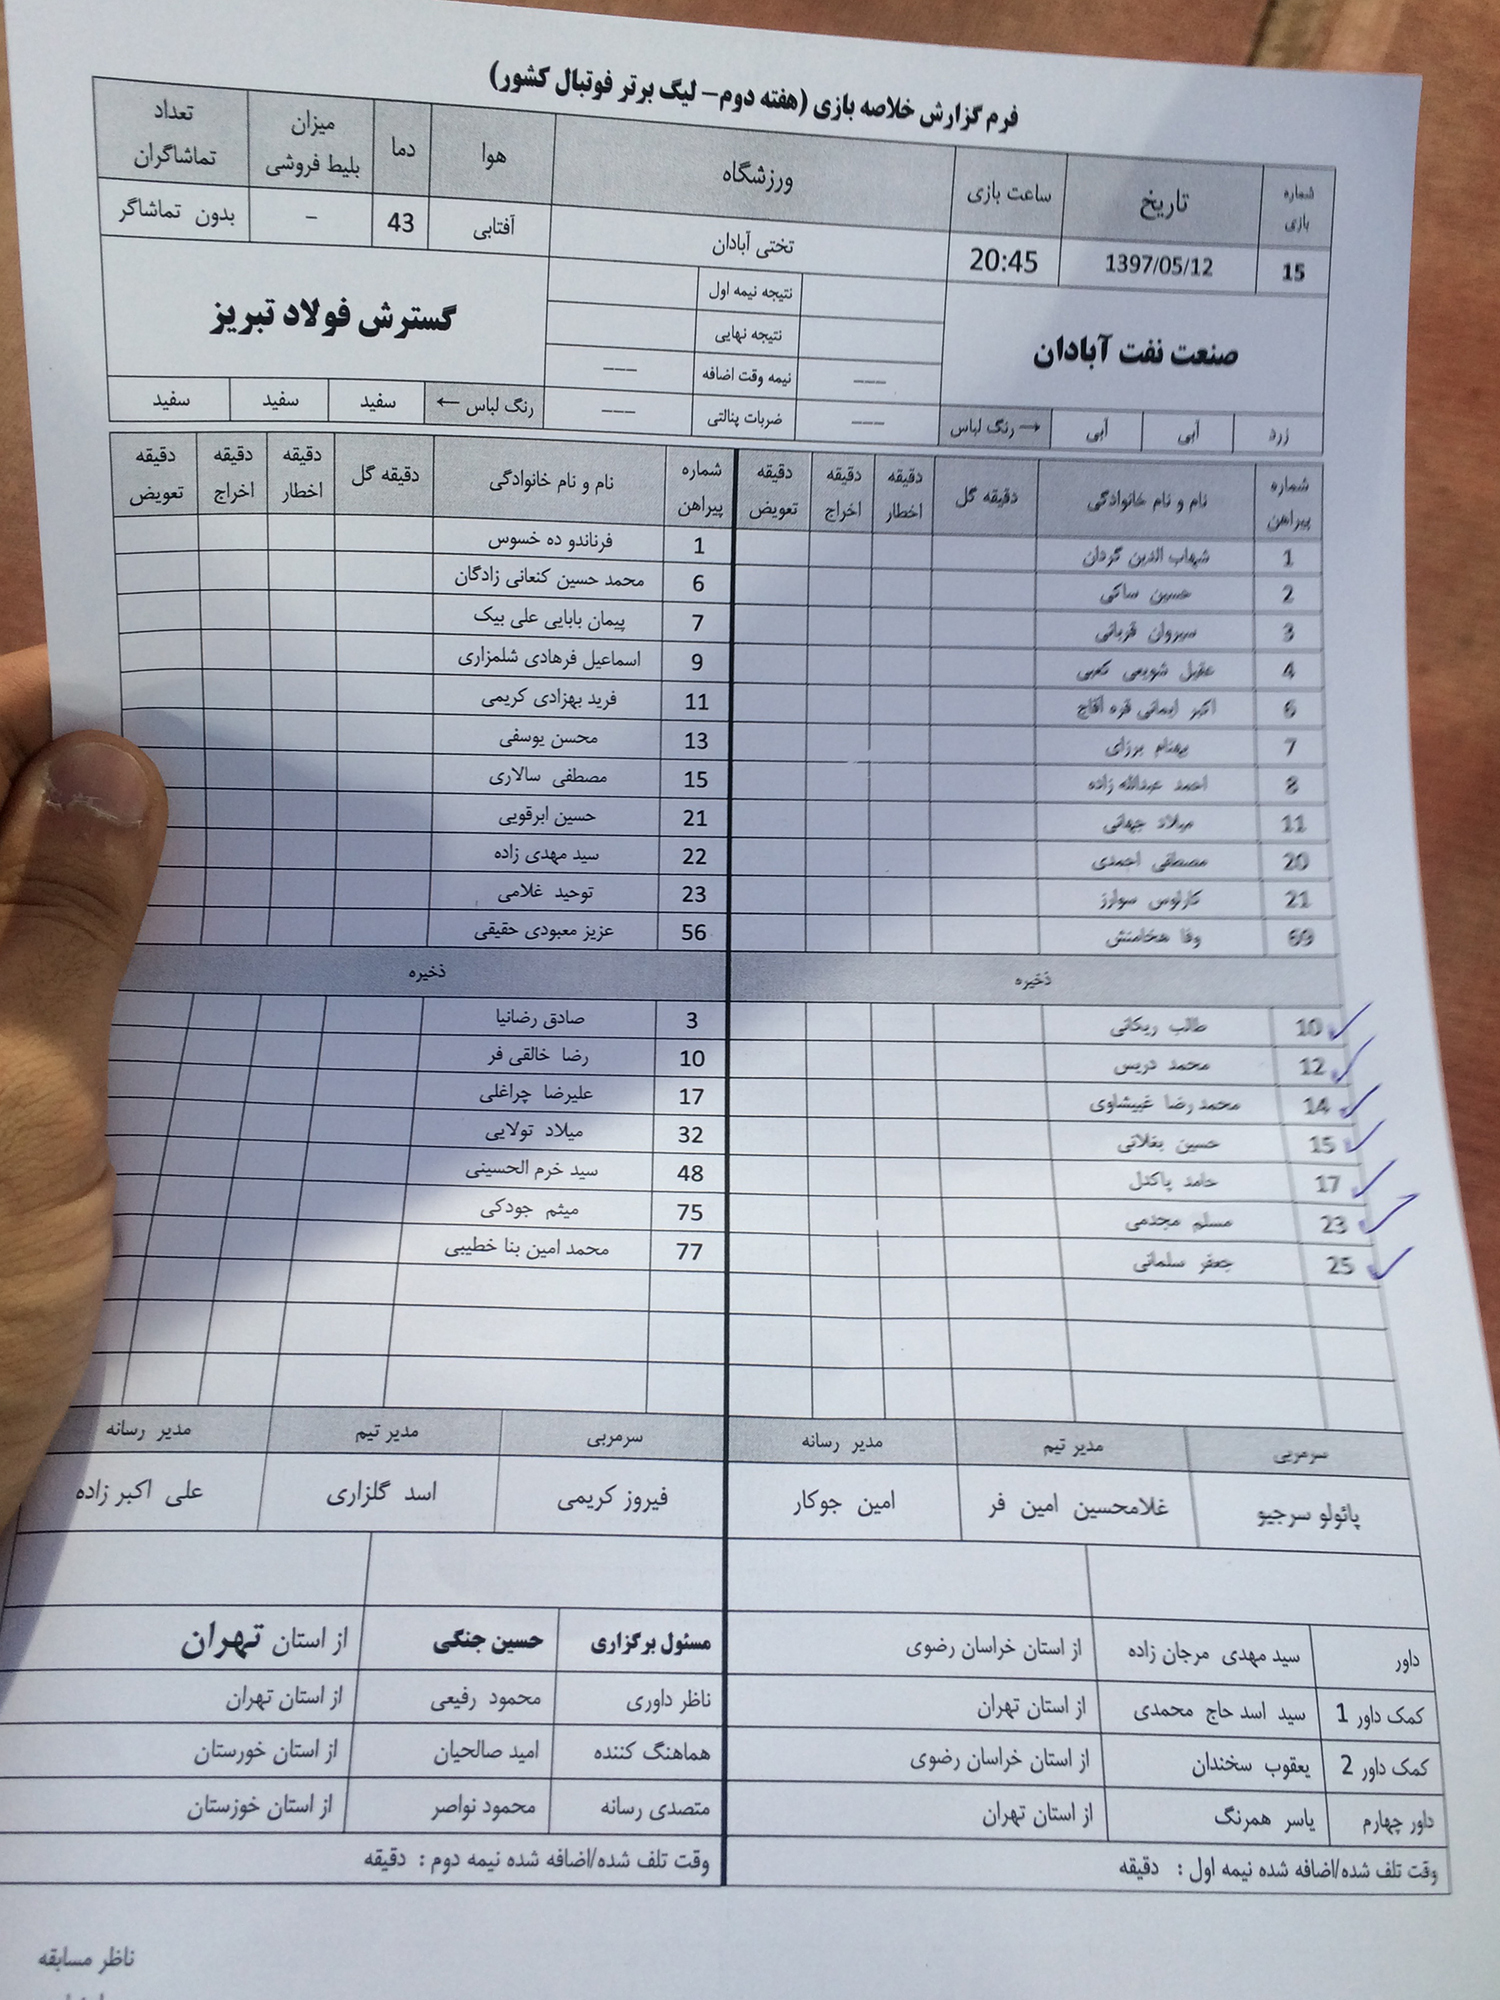 فرم گزارش خلاصه بازی (هفته دوم– لیگ برتر فوتبال کشور)
شماره بازی تاریخ ساعت بازی ورزشگاه هوا دما میزان بلیط فروشی تعداد تماشاگران
15 1397/05/12 20:45 تختی آبادان آفتابی 43 – بدون تماشاگر
صنعت نفت آبادان نتیجه نیمه اول گسترش فولاد تبریز
نتیجه نهایی
--- نیمه وقت اضافه ---
--- ضربات پنالتی ---
زرد آبی آبی → رنگ لباس
رنگ لباس ← سفید سفید سفید
شماره پیراهن نام و نام خانوادگی دقیقه گل دقیقه اخطار دقیقه اخراج دقیقه تعویض شماره پیراهن نام و نام خانوادگی دقیقه گل دقیقه اخطار دقیقه اخراج دقیقه تعویض
1 شهاب الدین گردان 1 فرناندو ده خسوس
2 حسین ساکی 6 محمد حسین کنعانی زادگان
3 سیروان قربانی 7 پیمان بابایی علی بیک
4 عقیل شویعی کعبی 9 اسماعیل فرهادی شلمزاری
6 اکبر ایمانی قره آقاج 11 فرید بهزادی کریمی
7 بهنام برزای 13 محسن یوسفی
8 احمد عبدالله زاده 15 مصطفی سالاری
11 میلاد جهانی 21 حسین ابرقویی
20 مصطفی احمدی 22 سید مهدی زاده
21 کارلوس سوارز 23 توحید غلامی
69 وفا هخامنش 56 عزیز معبودی حقیقی
ذخیره ذخیره
10 طالب ریکانی 3 صادق رضانیا
12 محمد دریس 10 رضا خالقی فر
14 محمد رضا غبیشاوی 17 علیرضا چراغلی
15 حسین بغلانی 32 میلاد تولایی
17 حامد پاکدل 48 سید خرم الحسینی
23 مسلم مجدمی 75 میثم جودکی
25 جعفر سلمانی 77 محمد امین بنا خطیبی
سرمربی مدیر تیم مدیر رسانه سرمربی مدیر تیم مدیر رسانه
پائولو سرجیو غلامحسین امین فر امین جوکار فیروز کریمی اسد گلزاری علی اکبر زاده
داور سید مهدی مرجان زاده از استان خراسان رضوی مسئول برگزاری حسین جنگی از استان تهران
کمک داور 1 سید اسد حاج محمدی از استان تهران ناظر داوری محمود رفیعی از استان تهران
کمک داور 2 یعقوب سخندان از استان خراسان رضوی هماهنگ کننده امید صالحیان از استان خورستان
داور چهارم یاسر همرنگ از استان تهران متصدی رسانه محمود نواصر از استان خوزستان
وقت تلف شده/اضافه شده نیمه اول : دقیقه وقت تلف شده/اضافه شده نیمه دوم : دقیقه
ناظر مسابقه